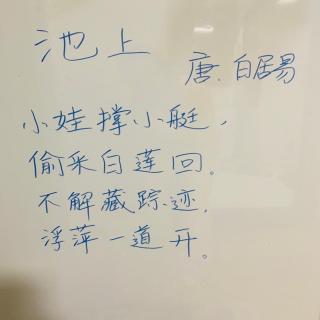 池上
唐.白居易
小娃撑小艇，
偷采白莲回。
不解藏踪迹，
浮萍一道开。